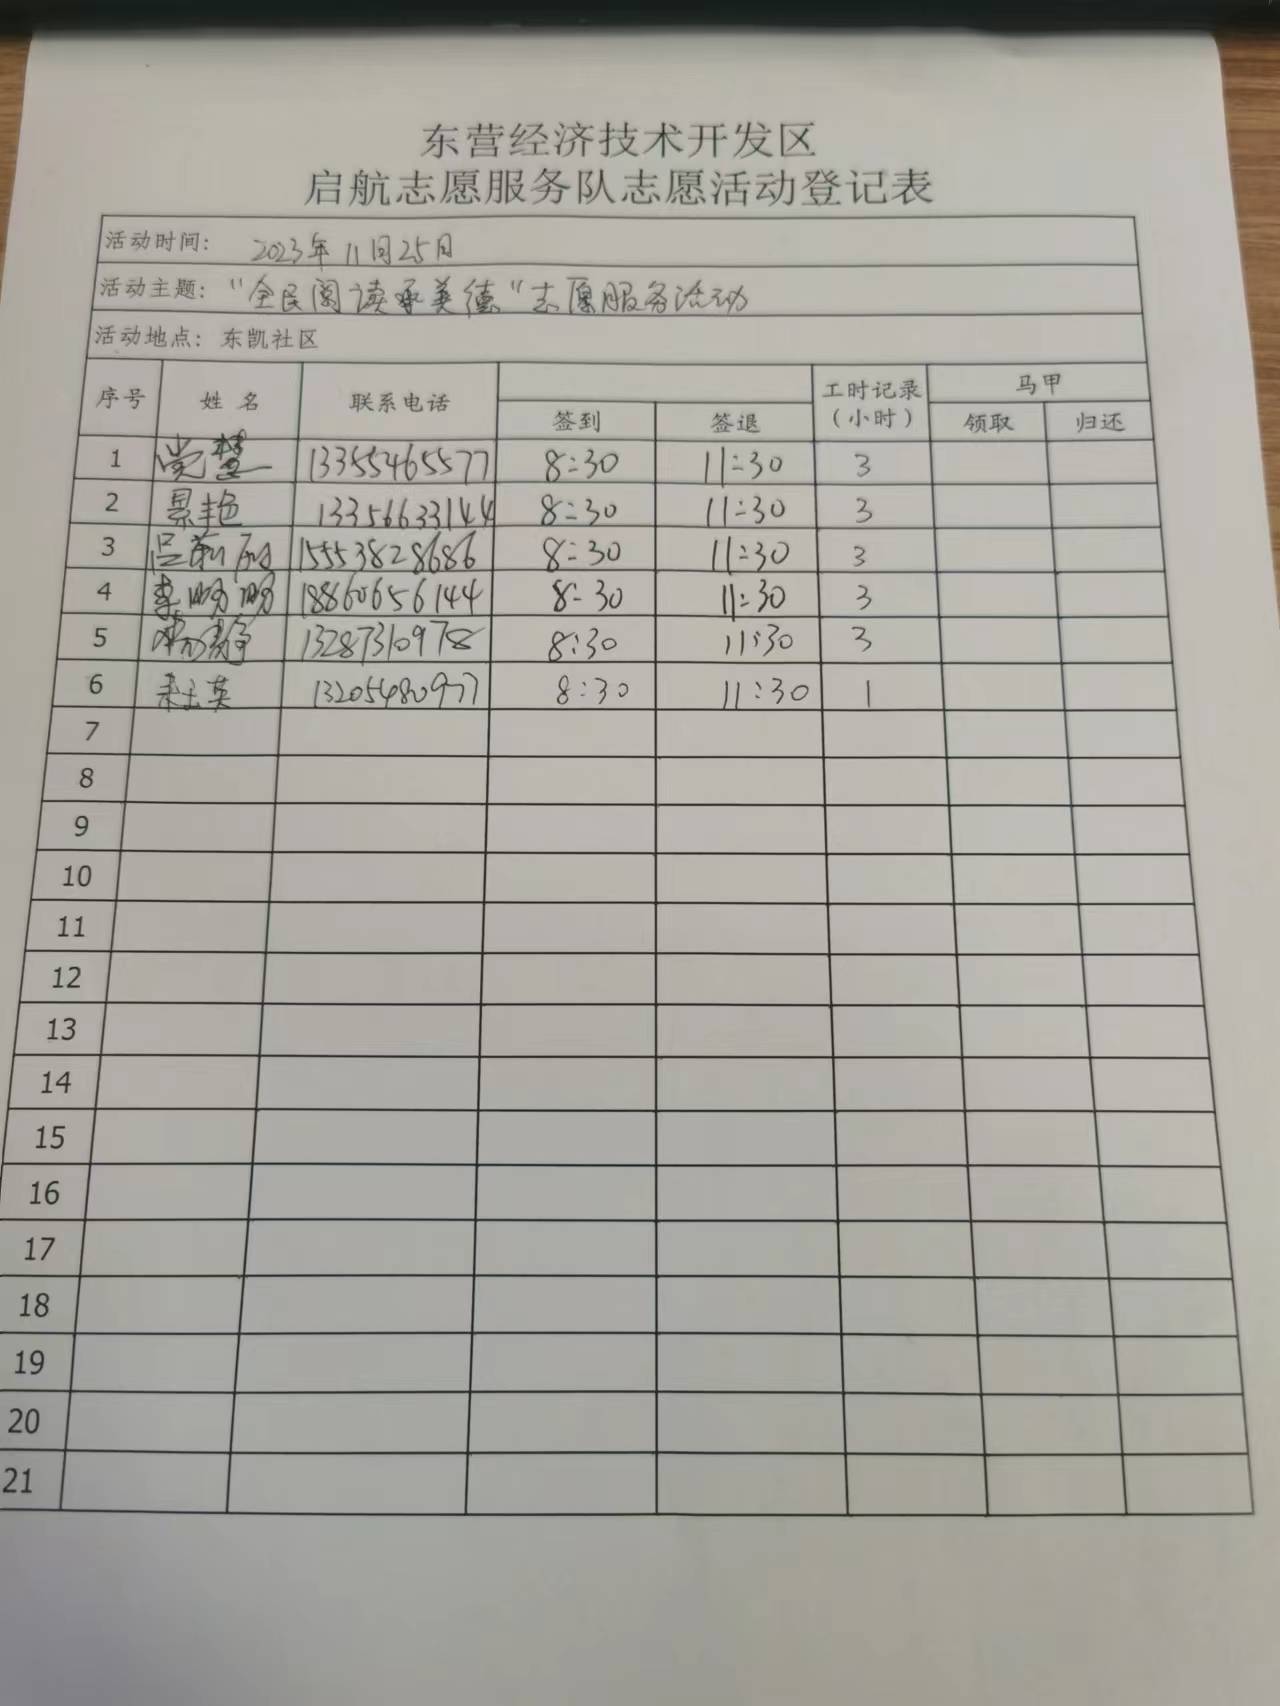 东营经济技术开发区
启航志愿服务队志愿活动登记表
活动时间: 2023年11月25日
活动主题: "全民阅读承美德"志愿服务活动
活动地点: 东凯社区
序号 姓名 联系电话 签到 签退 工时记录(小时) 马甲 领取 归还
1 党慧 13355465577 8:30 11:30 3
2 景艳 13356633144 8:30 11:30 3
3 15553828686 8:30 11:30 3
4 李明明 18860656144 8:30 11:30 3
5 杨静 13287310978 8:30 11:30 3
6 13205480977 8:30 11:30 1
7
8
9
10
11
12
13
14
15
16
17
18
19
20
21